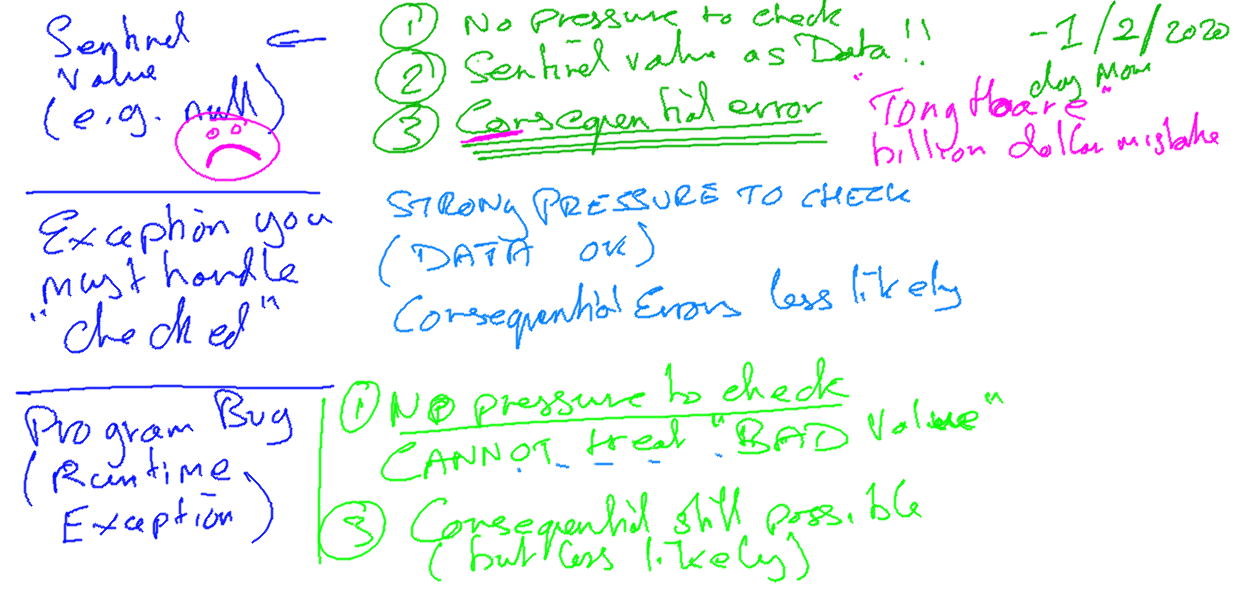 Sentinel
Value
(e.g. null)
① No pressure to check
② Sentinel value as Data!!
③ Consequential error
-1/2/2020
day Mon
"Tony Hoare"
billion dollar mistake
Exception you
must handle
"checked"
STRONG PRESSURE TO CHECK
(DATA OK)
Consequential Errors less likely
Program Bug
(Runtime
Exception)
① No pressure to check
CANNOT treat "BAD Value"
③ Consequential still possible
(but less likely)